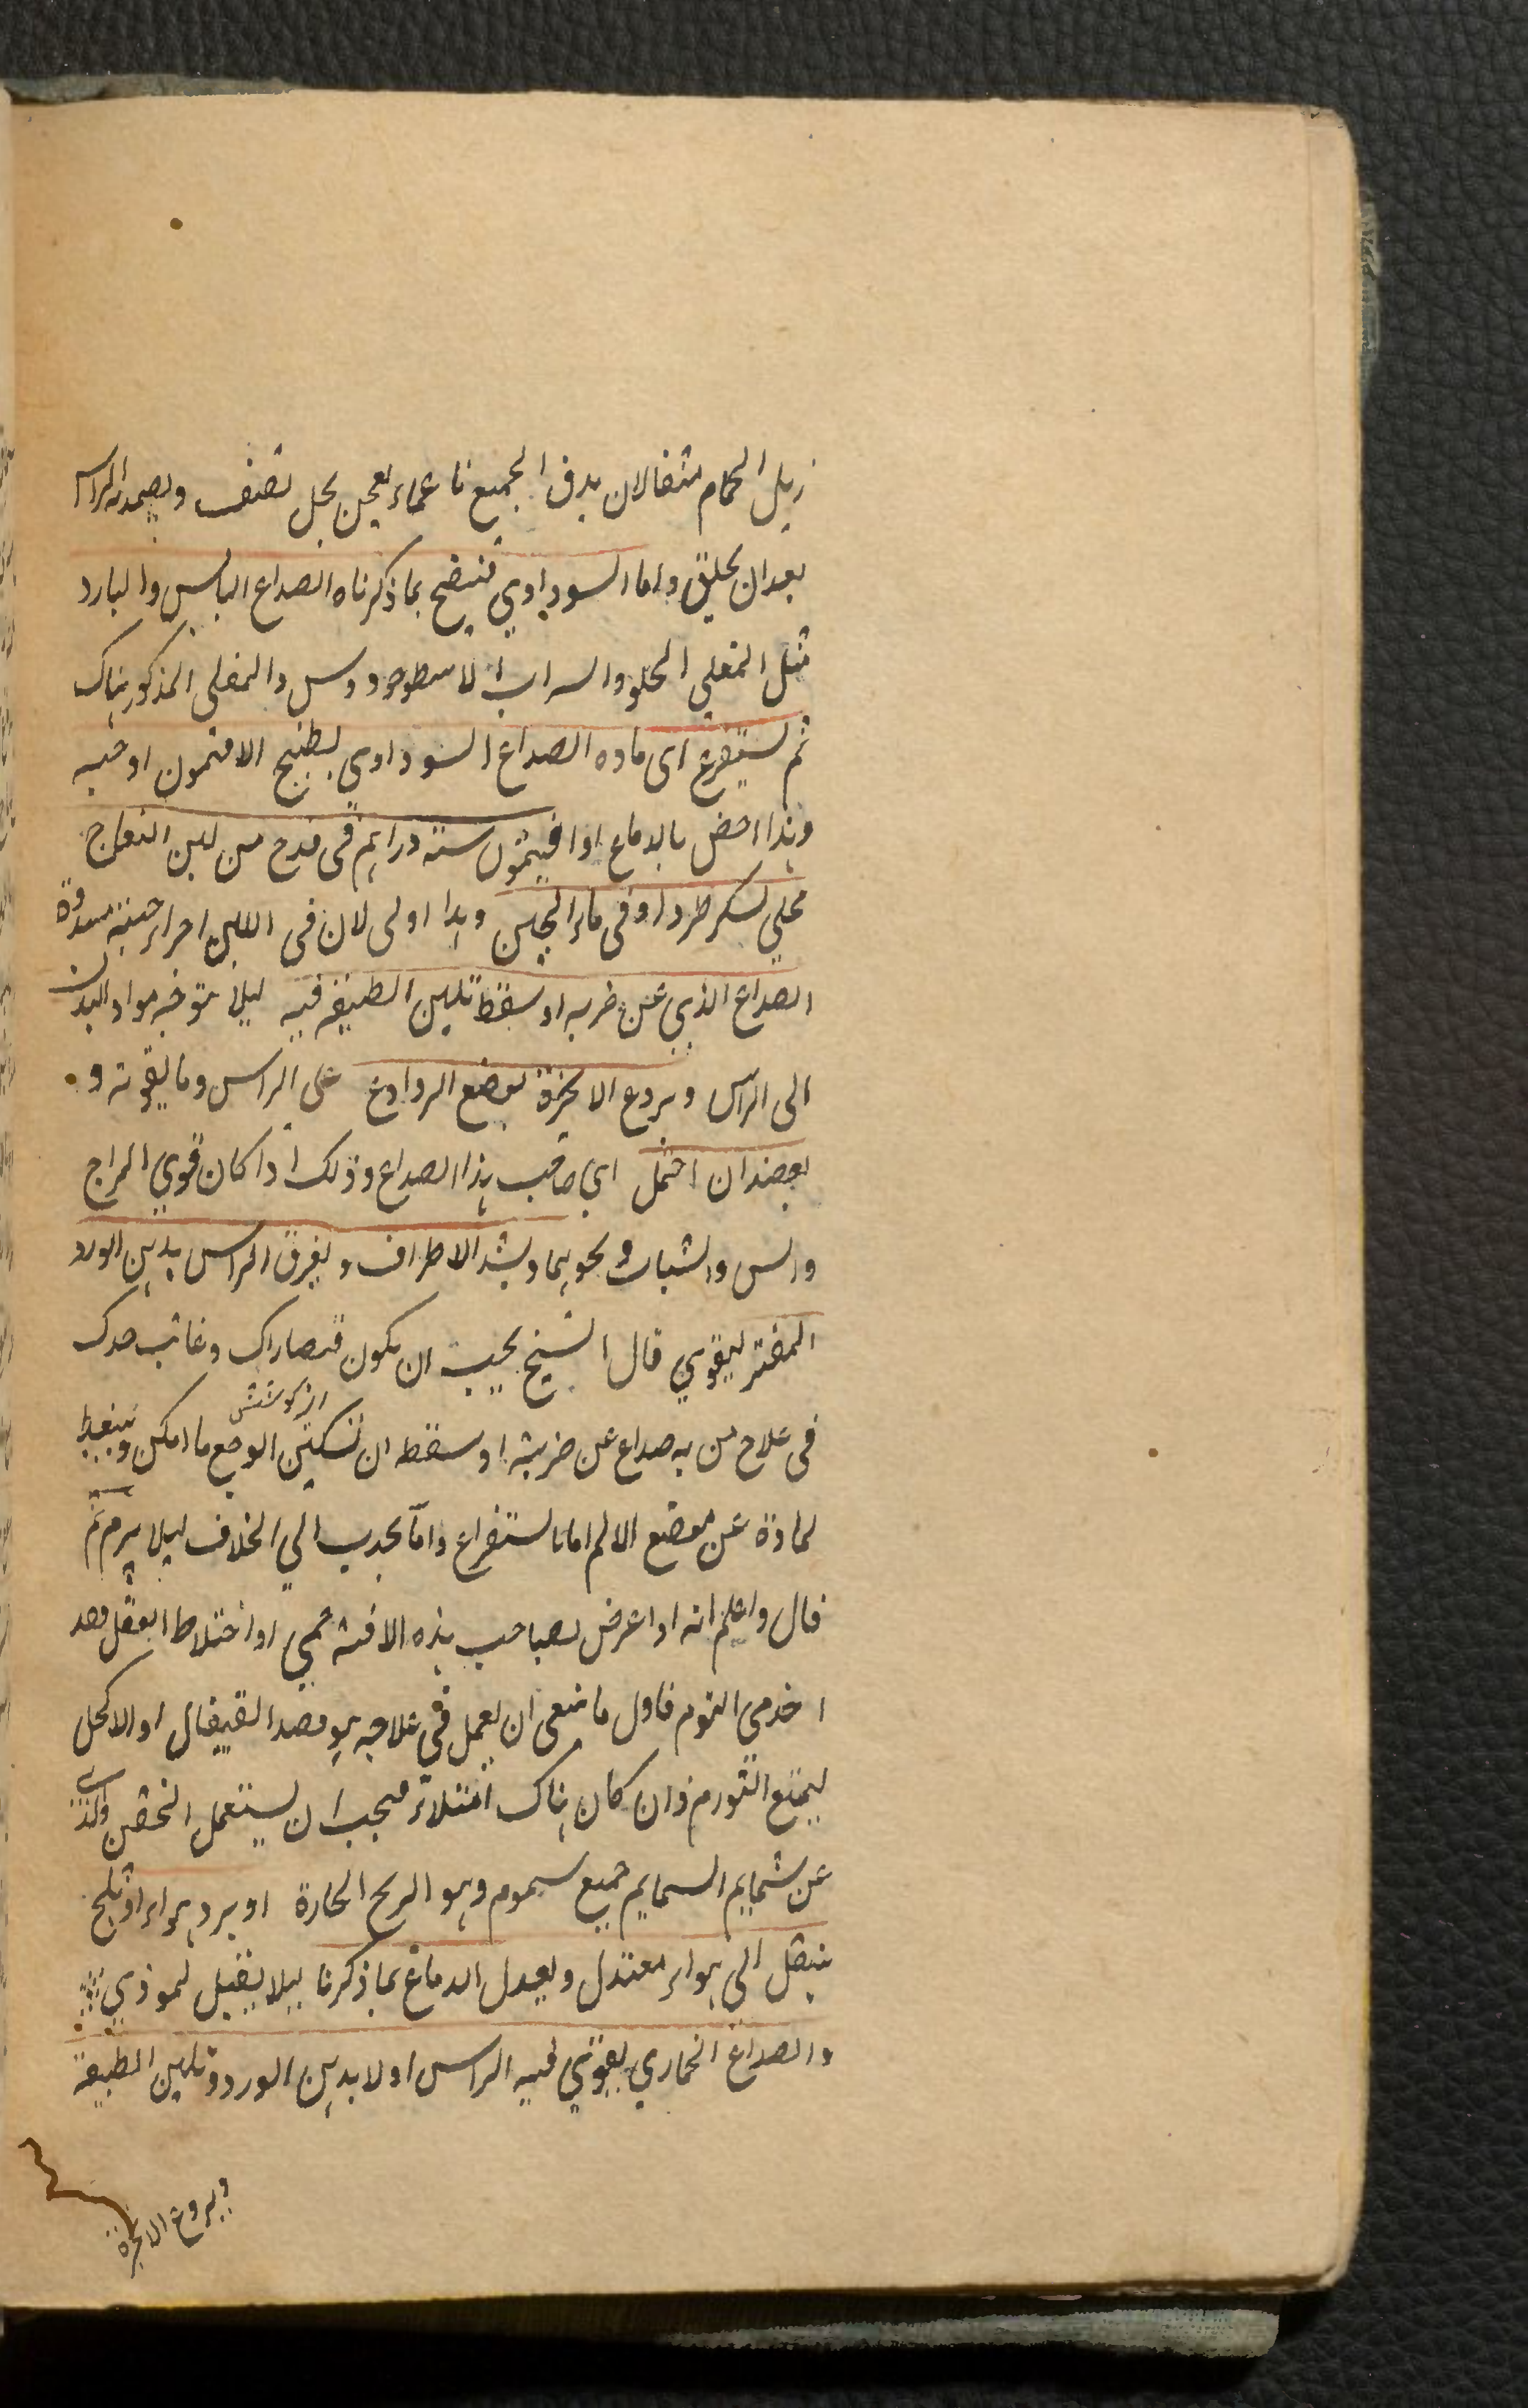 زبل الحمام مثقالان يدق الجميع ناعما و يعجن بخل ثقيف ويضمد به الراس
بعد ان يحلق واما السوداوي فينضج بما ذكرناه الصداع اليابس والبارد
مثل المغلي الحلو والشراب الاسطوخودوس والمغلى المذكور هناك
ثم يستفرغ اى ماده الصداع السوداوى بطبيخ الافتمون او حبه
وهذا اخص بالدماغ او افيتمون ستة دراهم فى قدح من لبن النعاج
محلي بسكر طبرزد او فى ماء الجبن وهذا اولى لان فى اللبن اجزاء جبنية مسددة
الصداع الذي عن ضربه او سقط تليين الطبيعة فيه ليلا يتوجه مواد البدن
الى الراس ويردع الابخرة بوضع الروادع على الراس وما يقويه و
بعضد ان احتمل اي صاحب هذا الصداع وذلك اذا كان قوي المزاج
والسن والشباب ونحوهما ويشد الاطراف و يغرق الراس بدهن الورد
المفتر ليقوي قال الشيخ يجب ان يكون قصاراك وغاية حدك
از كوشش
فى علاج من به صداع عن ضربة او سقط ان تسكين الوجع ما امكن و
لمادة عن موضع الالم اما باستفراغ واما بجذب الي الخلاف ليلا يرم ثم
قال واعلم انه اذا عرض لصاحب هذه الافة حمي او اختلاط العقل فقد
اخذ فى التورم فاول ما ينبغى ان يعمل في علاجه هو فصد القيفال او الاكحل
ليمنع التورم وان كان هناك امتلاء فيجب ان يستعمل الحقن والذي
عن شمايم السمايم جميع سموم وهو الريح الحارة او برد هواء او ثلج
ينقل الي هواء معتدل ويعدل الدماغ بما ذكرنا ليلا يقبل لموذي
والصداع الخماري يقوي فيه الراس اولا بدهن الورد و تليين الطبيعة
ويردع الابخرة